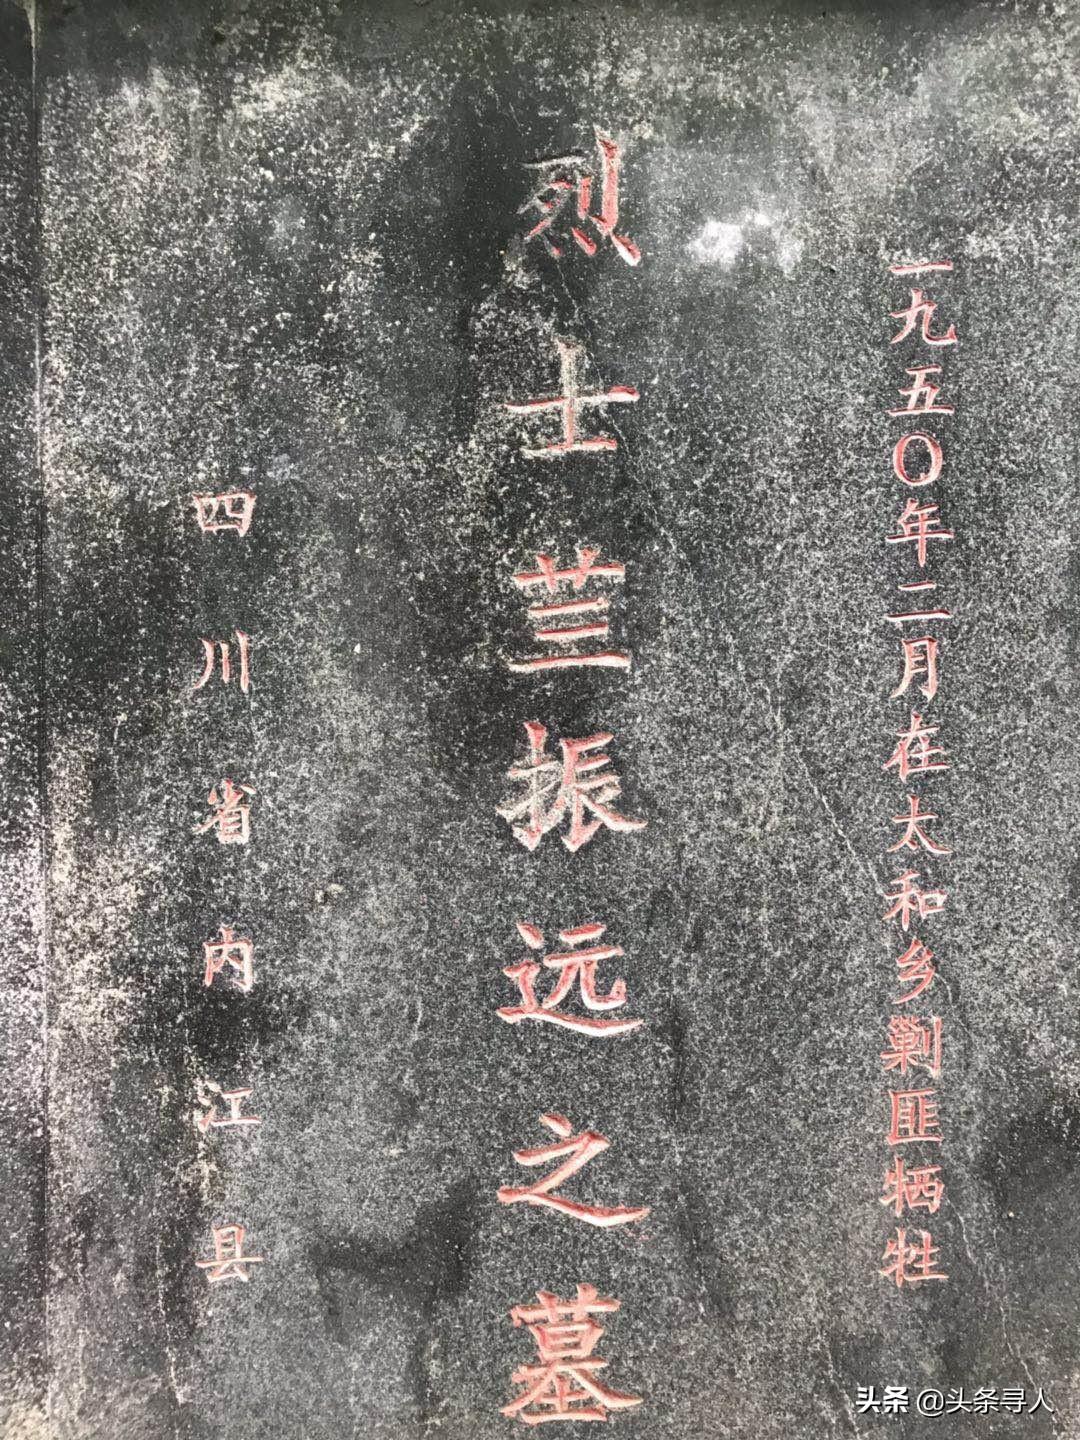 一九五〇年二月在太和乡剿匪牺牲
烈士兰振远之墓
四川省内江县
头条 @头条寻人